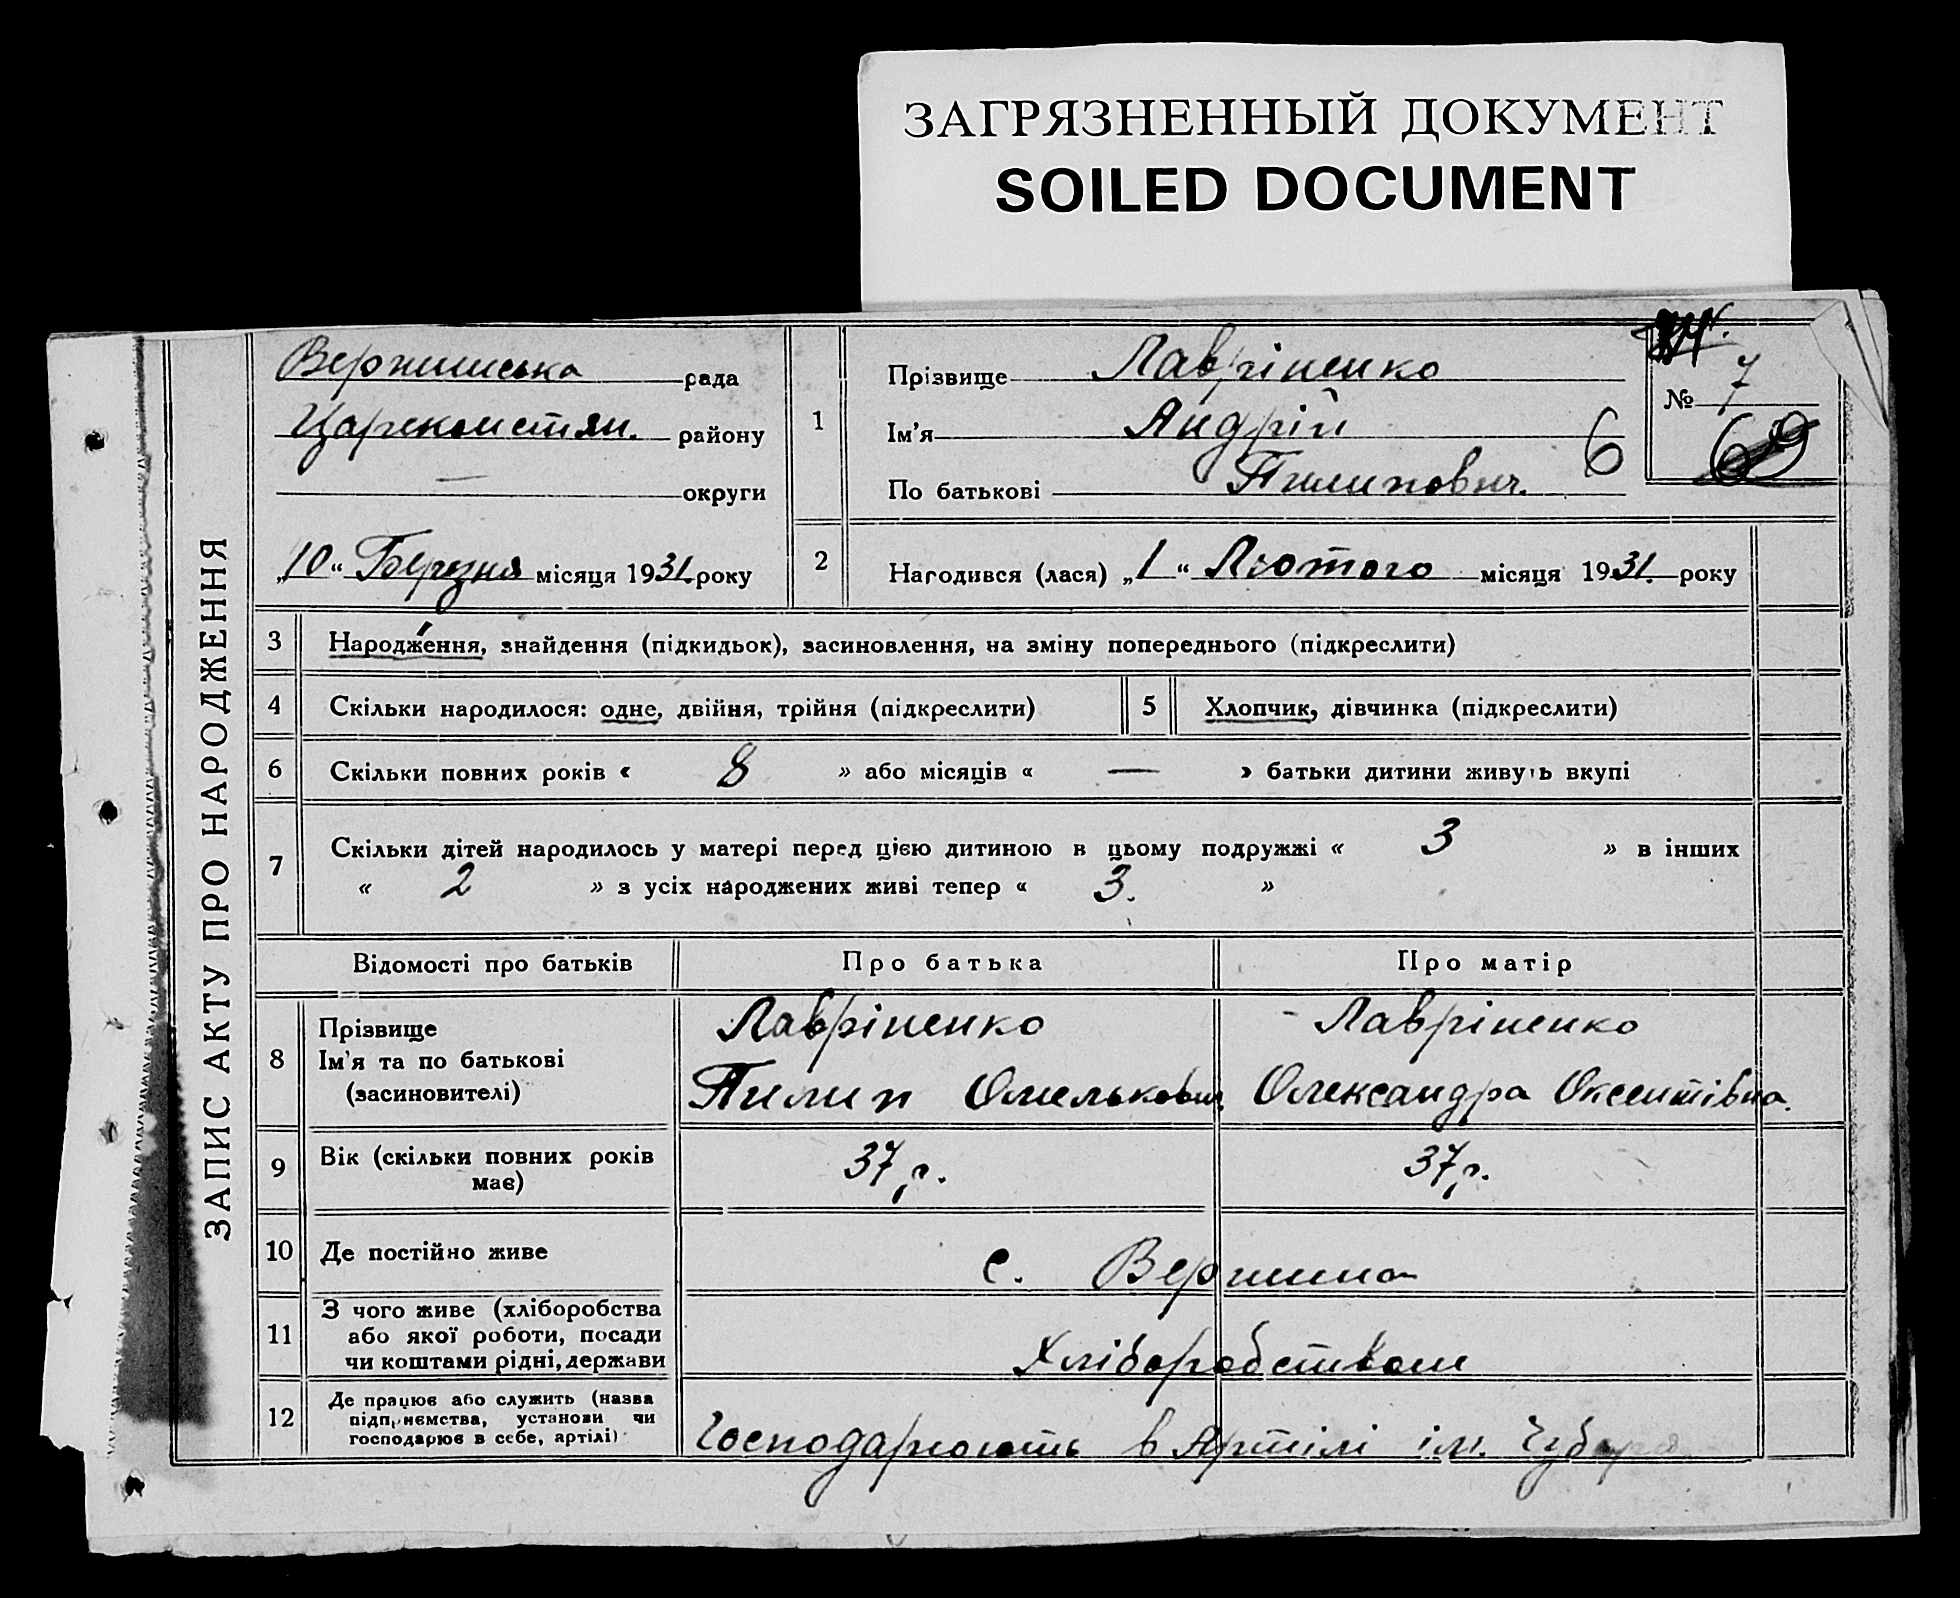 ЗАГРЯЗНЕННЫЙ ДОКУМЕНТ
SOILED DOCUMENT
ЗАПИС АКТУ ПРО НАРОДЖЕННЯ
Вершинська рада
Царекомстян. району
— округи
„10“ Березня місяця 1931 року
1
Прізвище Лавріненко
Ім'я Андрій
По батькові Пилипович.
6
№ 7
69
2
Народився (лася) „1“ Лютого місяця 1931. року
3 Народження, знайдення (підкидьок), засиновлення, на зміну попереднього (підкреслити)
4 Скільки народилося: одне, двійня, трійня (підкреслити) 5 Хлопчик, дівчинка (підкреслити)
6 Скільки повних років « 8 » або місяців « — » батьки дитини живуть вкупі
7 Скільки дітей народилось у матері перед цією дитиною в цьому подружжі « 3 » в інших
« 2 » з усіх народжених живі тепер « 3. »
Відомості про батьків Про батька Про матір
8 Прізвище
Ім'я та по батькові
(засиновителі)
Лавріненко
Пилип Омелькович.
Лавріненко
Олександра Оксентівна.
9 Вік (скільки повних років
має)
37 р. 37 р.
10 Де постійно живе с. Вершина
11 З чого живе (хліборобства
або якої роботи, посади
чи коштами рідні, держави
Хліборобством
12 Де працює або служить (назва
підприємства, установи чи
господарює в себе, артілі)
Господарюють в Артілі ім. Чубаря